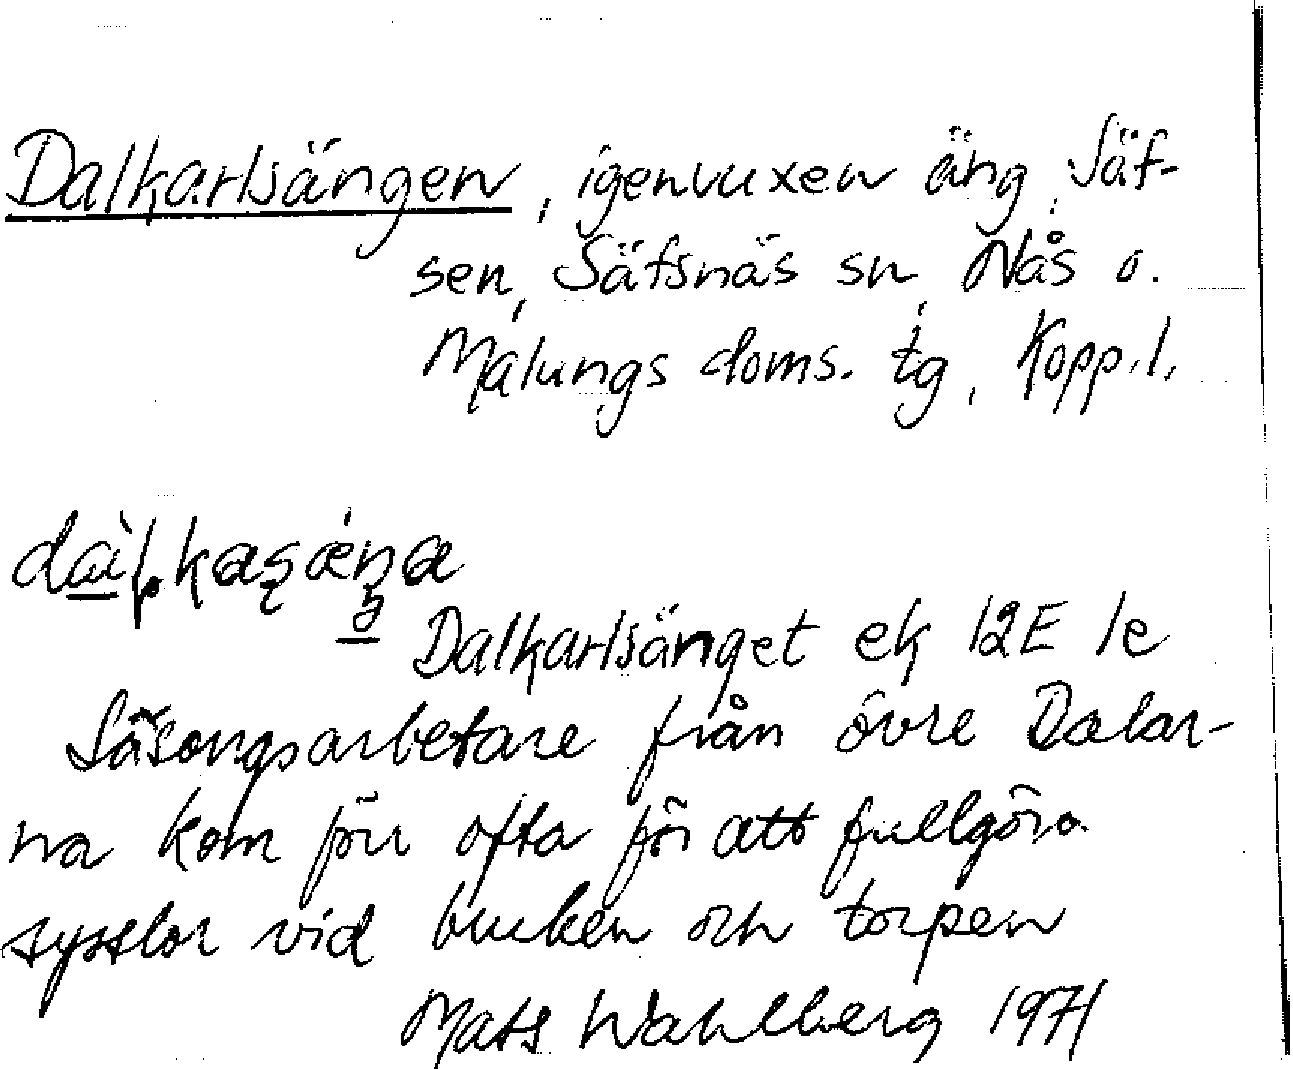 Dalkarlsängen, igenvuxen äng, Säf-
sen, Säfsnäs sn, Nås o.
Malungs doms. tg, Kopp. l.
Dalkarlsänget ek 12E 1e
Säsongsarbetare från övre Dalar-
na kom förr ofta för att fullgöra
sysslor vid bruken och torpen
Mats Wahlberg 1971